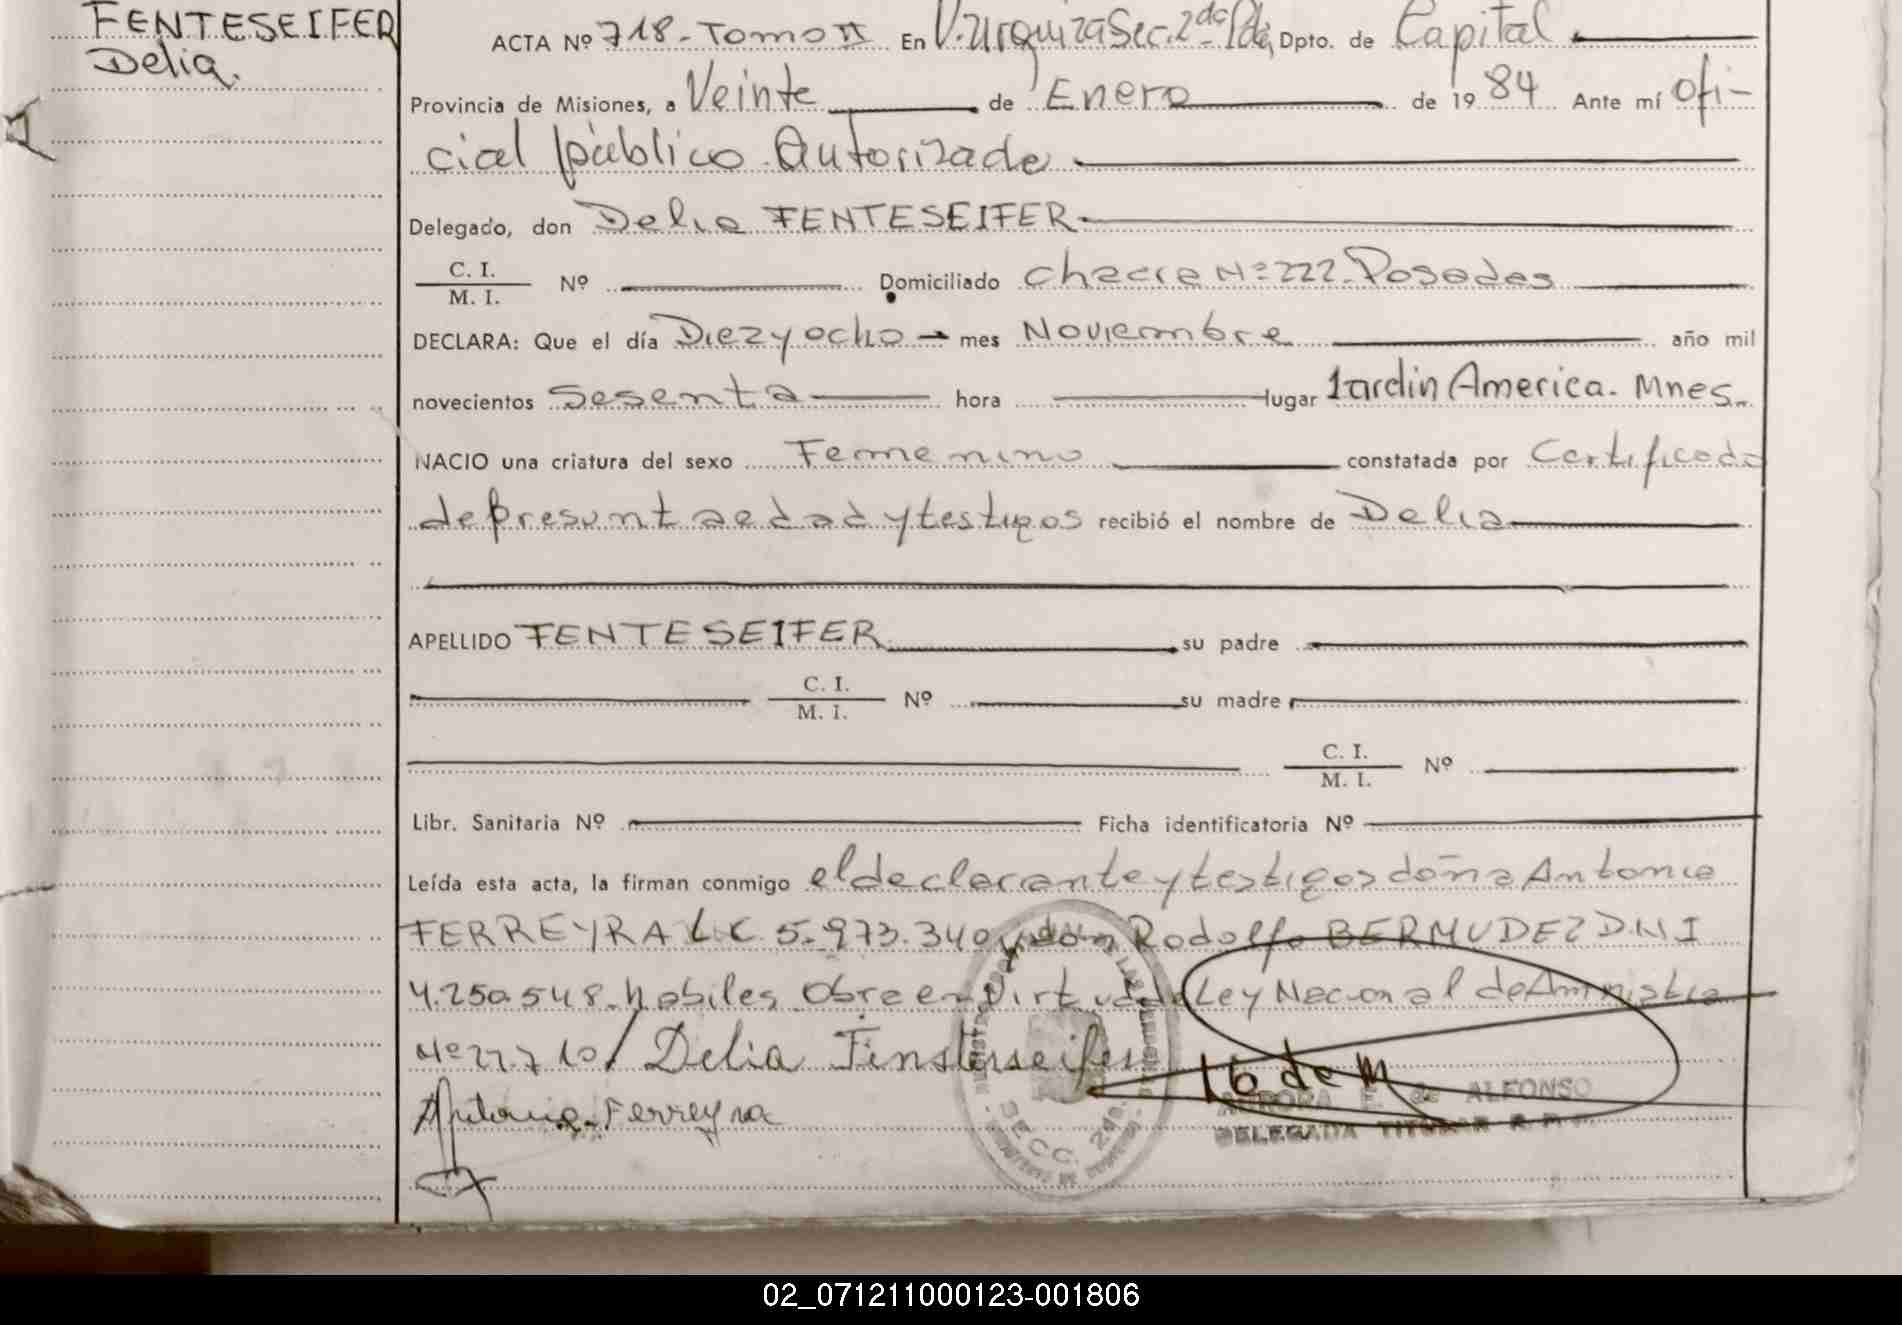 FENTESEIFER
Delia.
ACTA Nº 718-Tomo II En V. Urquiza Sec. 2da Pda, Dpto. de Capital
Provincia de Misiones, a Veinte de Enero de 19 84 Ante mí Ofi-
cial público Autorizado
Delegado, don Delia FENTESEIFER
C. I.
M. I. Nº Domiciliado Chacra Nº 222-Posadas
DECLARA: Que el día Diez y ocho mes Noviembre año mil
novecientos Sesenta hora lugar Jardin America. Mnes.
NACIO una criatura del sexo Femenino constatada por Certificado
de Presunta edad y testigos recibió el nombre de Delia
APELLIDO FENTESEIFER su padre
C. I.
M. I. Nº su madre
C. I.
M. I. Nº
Libr. Sanitaria Nº Ficha identificatoria Nº
Leída esta acta, la firman conmigo el declarante y testigos doña Antonia
FERREYRA L.C 5.973.340 y don Rodolfo BERMUDEZ DNI
4.250.548. habiles Obre en Virtud de Ley Nacional de Amnistia
Nº 22.710/ Delia Finsterseifer
Antonia Ferreyra
AURORA E. de ALFONSO
DELEGADA TITULAR
SECC. 2da.
02_071211000123-001806